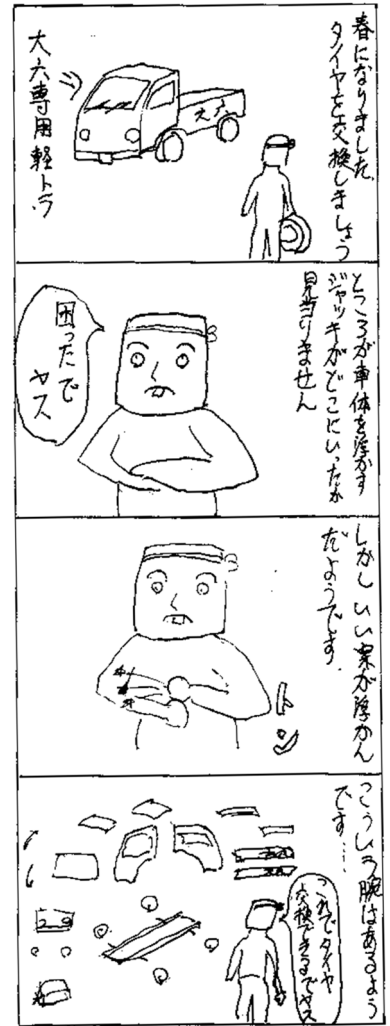 春になりました。
タイヤを交換しましょう
大六専用軽トラ
大六
ところが車体を浮かす
ジャッキがどこにいったか
見当りません
困ったで
ヤス
しかし いい案が浮かん
だようです.
トン
こういう腕はあるよう
です….
これでタイヤ
交換できるでヤス